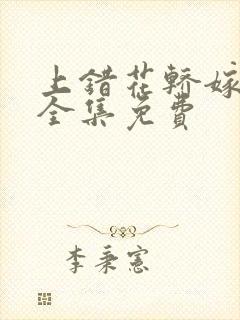 上错花轿嫁
全集免费
李秉宪